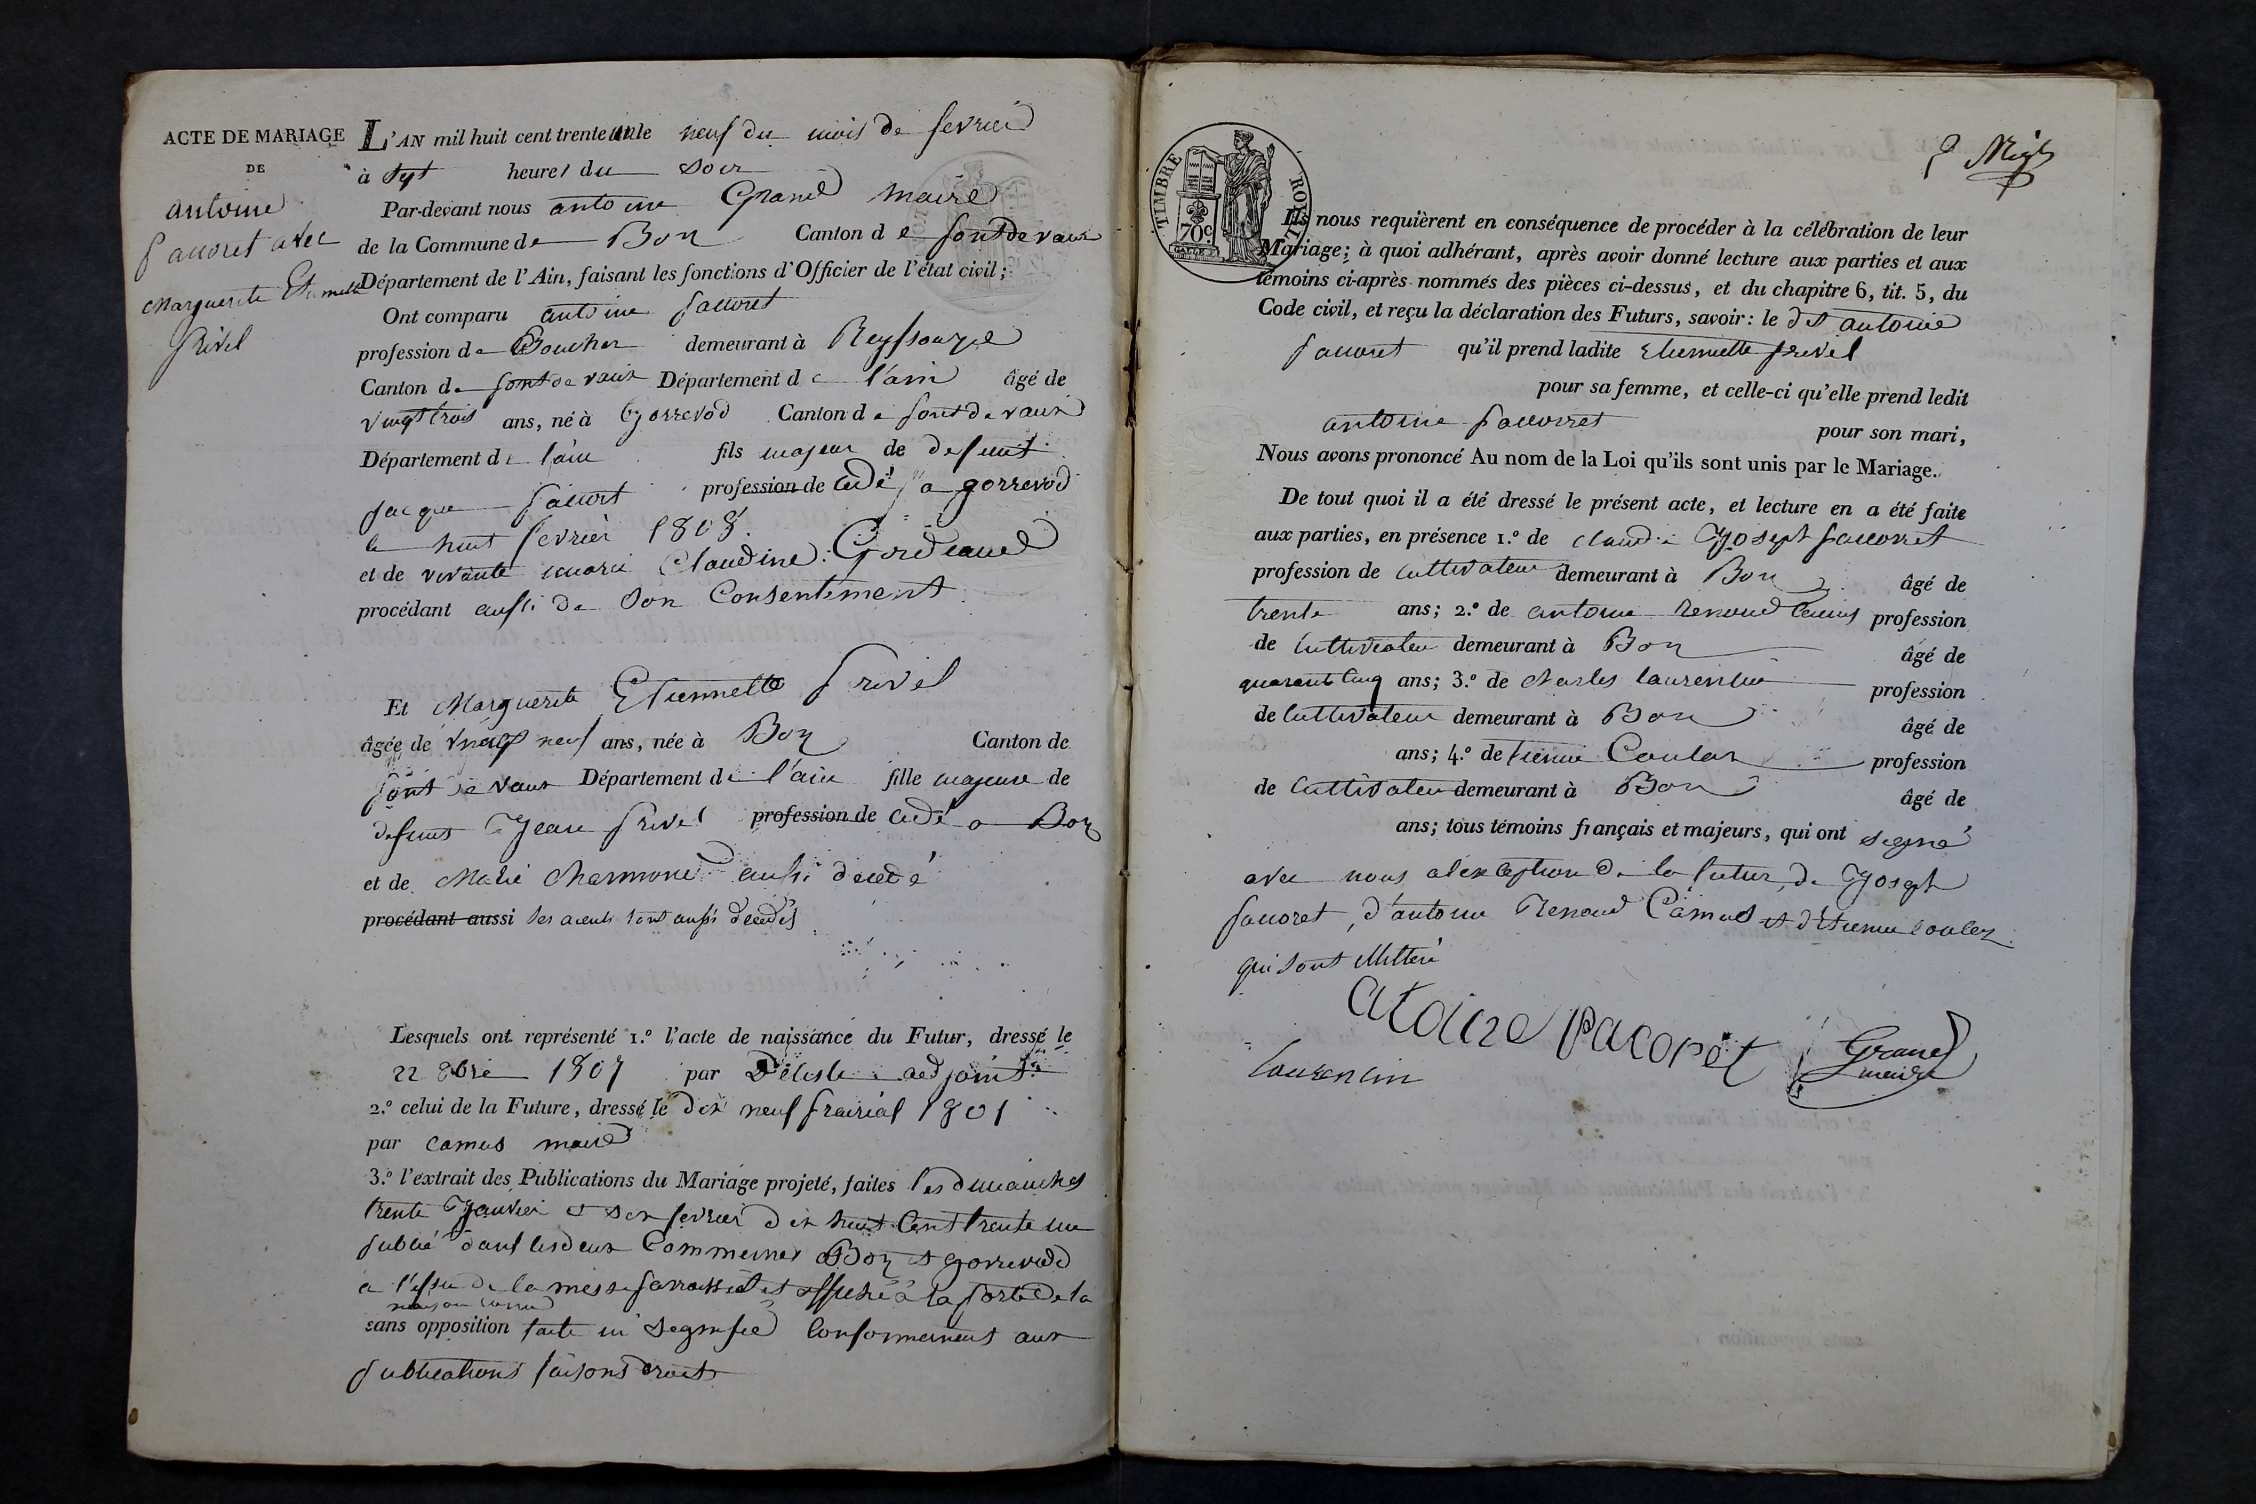 ACTE DE MARIAGE
DE
antoine
pacoret avec
Marguerite Etiennette
privel
L'AN mil huit cent trente un le neuf du mois de fevrier
à sept heures du soir
Par-devant nous antoine Grand maire
de la Commune de Boz Canton de pontdevaux
Département de l'Ain, faisant les fonctions d'Officier de l'état civil;
Ont comparu antoine pacoret
profession de Boucher demeurant à Reyssouze
Canton de pontdevaux Département de l'ain âgé de
vingt trois ans, né à Gorrevod Canton de pontdevaux
Département de l'ain fils majeur de defunt
jacque pacoret profession de décédé a gorrevod
le huit fevrier 1808.
et de vivante marie Claudine
procédant aussi de son Consentement
Et Marguerite Etiennette privel
âgée de vingt neuf ans, née à Boz Canton de
pont de vaux Département de l'ain fille majeure de
defunt Jean privel profession de décédé a Boz
et de Marie aussi décédé
procédant aussi ses aieuls sont aussi décédés
Lesquels ont représenté 1.º l'acte de naissance du Futur, dressé le
22 8bre 1807 par Delisle adjoint
2.º celui de la Future, dressé le dix neuf prairial 1801
par camus maire
3.º l'extrait des Publications du Mariage projeté, faites les dimanches
trente Janvier et six fevrier dix huit Cent trente un
publié dans les deux Communes Boz et gorrevod
a l'issue de la messe parroissiale et affiché à la porte de la
maison commune
sans opposition faite ni segnifié Conformement aux
publications faisons droit
Ils nous requièrent en conséquence de procéder à la célébration de leur
Mariage; à quoi adhérant, après avoir donné lecture aux parties et aux
témoins ci-après nommés des pièces ci-dessus, et du chapitre 6, tit. 5, du
Code civil, et reçu la déclaration des Futurs, savoir: le dit antoine
pacoret qu'il prend ladite Etiennette privel
pour sa femme, et celle-ci qu'elle prend ledit
antoine pacorret pour son mari,
Nous avons prononcé Au nom de la Loi qu'ils sont unis par le Mariage.
De tout quoi il a été dressé le présent acte, et lecture en a été faite
aux parties, en présence 1.º de claude Joseph pacorret
profession de cultivateur demeurant à Boz âgé de
trente ans; 2.º de antoine renoud Camus profession
de Cultivateur demeurant à Boz âgé de
quarante Cinq ans; 3.º de charles laurencin profession
de Cultivateur demeurant à Boz âgé de
ans; 4.º de tienne Coulas profession
de Cultivateur demeurant à Boz âgé de
ans; tous témoins français et majeurs, qui ont segné
avec nous alexception de la futur, de Joseph
pacoret, d'antoine Renoud Camus et d'Etienne
qui sont illitéré
atoine pacoret
Laurencin
Grand
maire
TIMBRE ROYAL
70 C